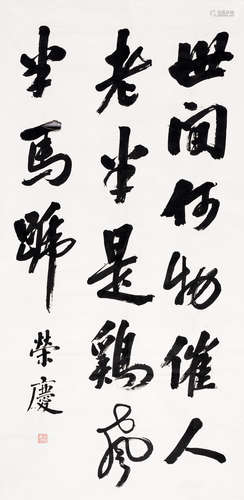 世間何物催人
老半是鷄聲
半馬蹏
榮慶